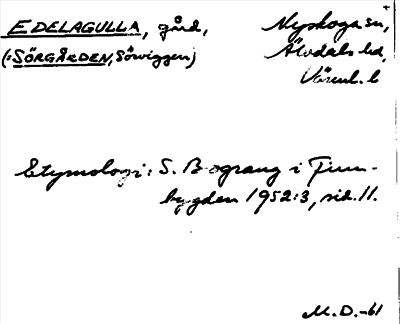 EDELAGULLA, gård, Nyskoga sn,
(=SÖRGÅRDEN, Sörviggen) Älvdals hd,
Värml. l.
Etymologi: S. Bograng i Finn-
bygden 1952:3, sid. 11.
M.D.-61